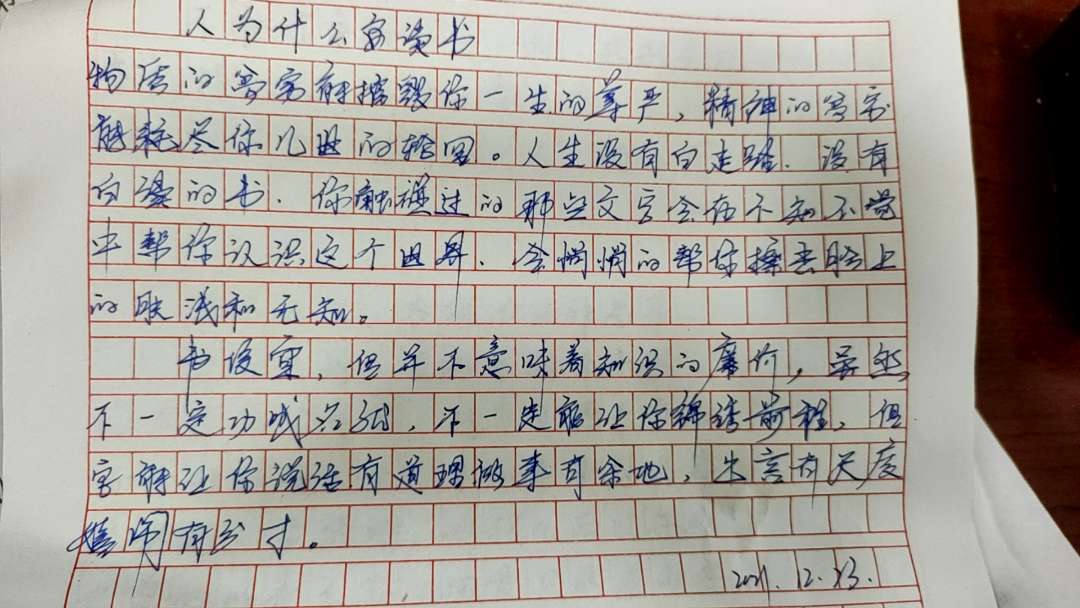 人为什么要读书
物质的贫穷能摧毁你一生的尊严，精神的贫穷
能耗尽你几世的轮回。人生没有白走路．没有
白读的书．你触摸过的那些文字会在不知不觉
中帮你认识这个世界．会悄悄的帮你擦去脸上
的肤浅和无知。
书便宜，但并不意味着知识的廉价，虽然
不一定功成名就，不一定能让你锦绣前程，但
它能让你说话有道理做事有余地，出言有尺度
嬉闹有分寸。
2021.12.23.